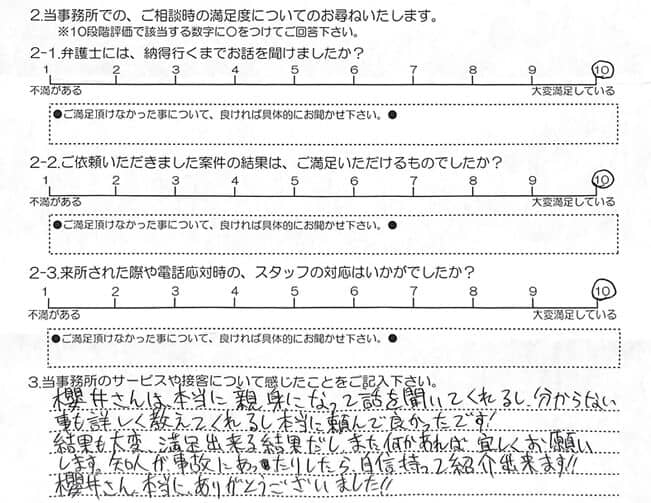 2.当事務所での、ご相談時の満足度についてのお尋ねいたします。
※10段階評価で該当する数字に〇をつけてご回答下さい。
2-1.弁護士には、納得行くまでお話を聞けましたか?
1 2 3 4 5 6 7 8 9 10
不満がある 大変満足している
●ご満足頂けなかった事について、良ければ具体的にお聞かせ下さい。●
2-2.ご依頼いただきました案件の結果は、ご満足いただけるものでしたか?
1 2 3 4 5 6 7 8 9 10
不満がある 大変満足している
●ご満足頂けなかった事について、良ければ具体的にお聞かせ下さい。●
2-3.来所された際や電話応対時の、スタッフの対応はいかがでしたか?
1 2 3 4 5 6 7 8 9 10
不満がある 大変満足している
●ご満足頂けなかった事について、良ければ具体的にお聞かせ下さい。●
3.当事務所のサービスや接客について感じたことをご記入下さい。
櫻井さんは、本当に親身になって話を聞いてくれるし、分からない
事も詳しく教えてくれるし本当に頼んで良かったです!
結果も大変、満足出来る結果だし、また何かあれば宜しくお願い
します。知人が事故にあったりしたら、自信持って紹介出来ます!!
櫻井さん、本当に、ありがとうございました!!